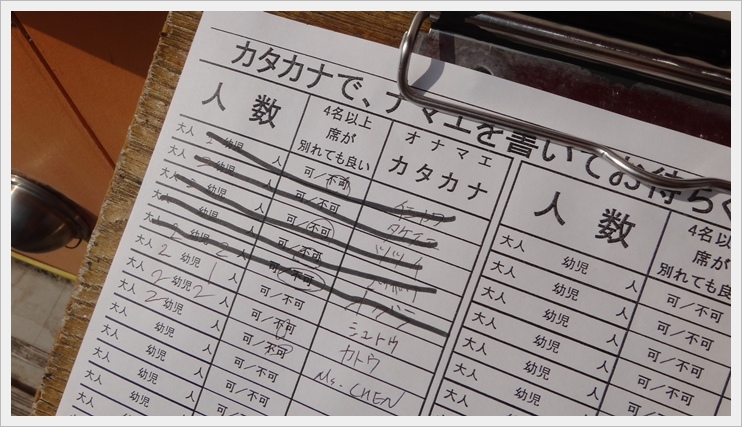 カタカナで、ナマエを書いてお待ち
人 数
4名以上
席が
別れても良い
オ ナ マ エ
カタカナ
大人 幼児 可/不可
大人 幼児 人 可/不可 タケイ
大人 幼児 人 可/不可
大人 幼児 人 可/不可
大人 2 幼児 2 人 可/不可
大人 2 幼児 1 人 可/不可 シュトウ
大人 2 幼児 2 人 可/不可 カトウ
大人 2 幼児 人 可/不可 Ms. CHEN
大人 幼児 人 可/不可
大人 幼児 人 可/不可
大人 幼児 人 可/不可
大人 幼児 人
人 数
4名以
席が
別れても良
大人 幼児 人 可/不可
大人 幼児 人 可/不可
大人 幼児 人 可/不可
大人 幼児 人 可/不可
大人 幼児 人 可/不可
大人 幼児 人 可/不可
大人 幼児